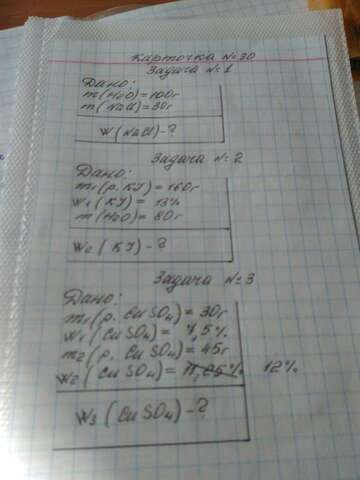 Карточка №30
Задача №1
Дано:
m(H₂O)=100г
m(NaCl)=30г
W(NaCl)-?
Задача №2
Дано:
m₁(р. KJ)=160г
w₁(KJ)= 13%
m(H₂O)= 80г
w₂(KJ)-?
Задача №3
Дано:
m₁(р. CuSO₄)= 30г
w₁(CuSO₄)= 7,5%
m₂(р. CuSO₄)= 45г
w₂(CuSO₄)= 11,25% 12%
W₃(CuSO₄)-?